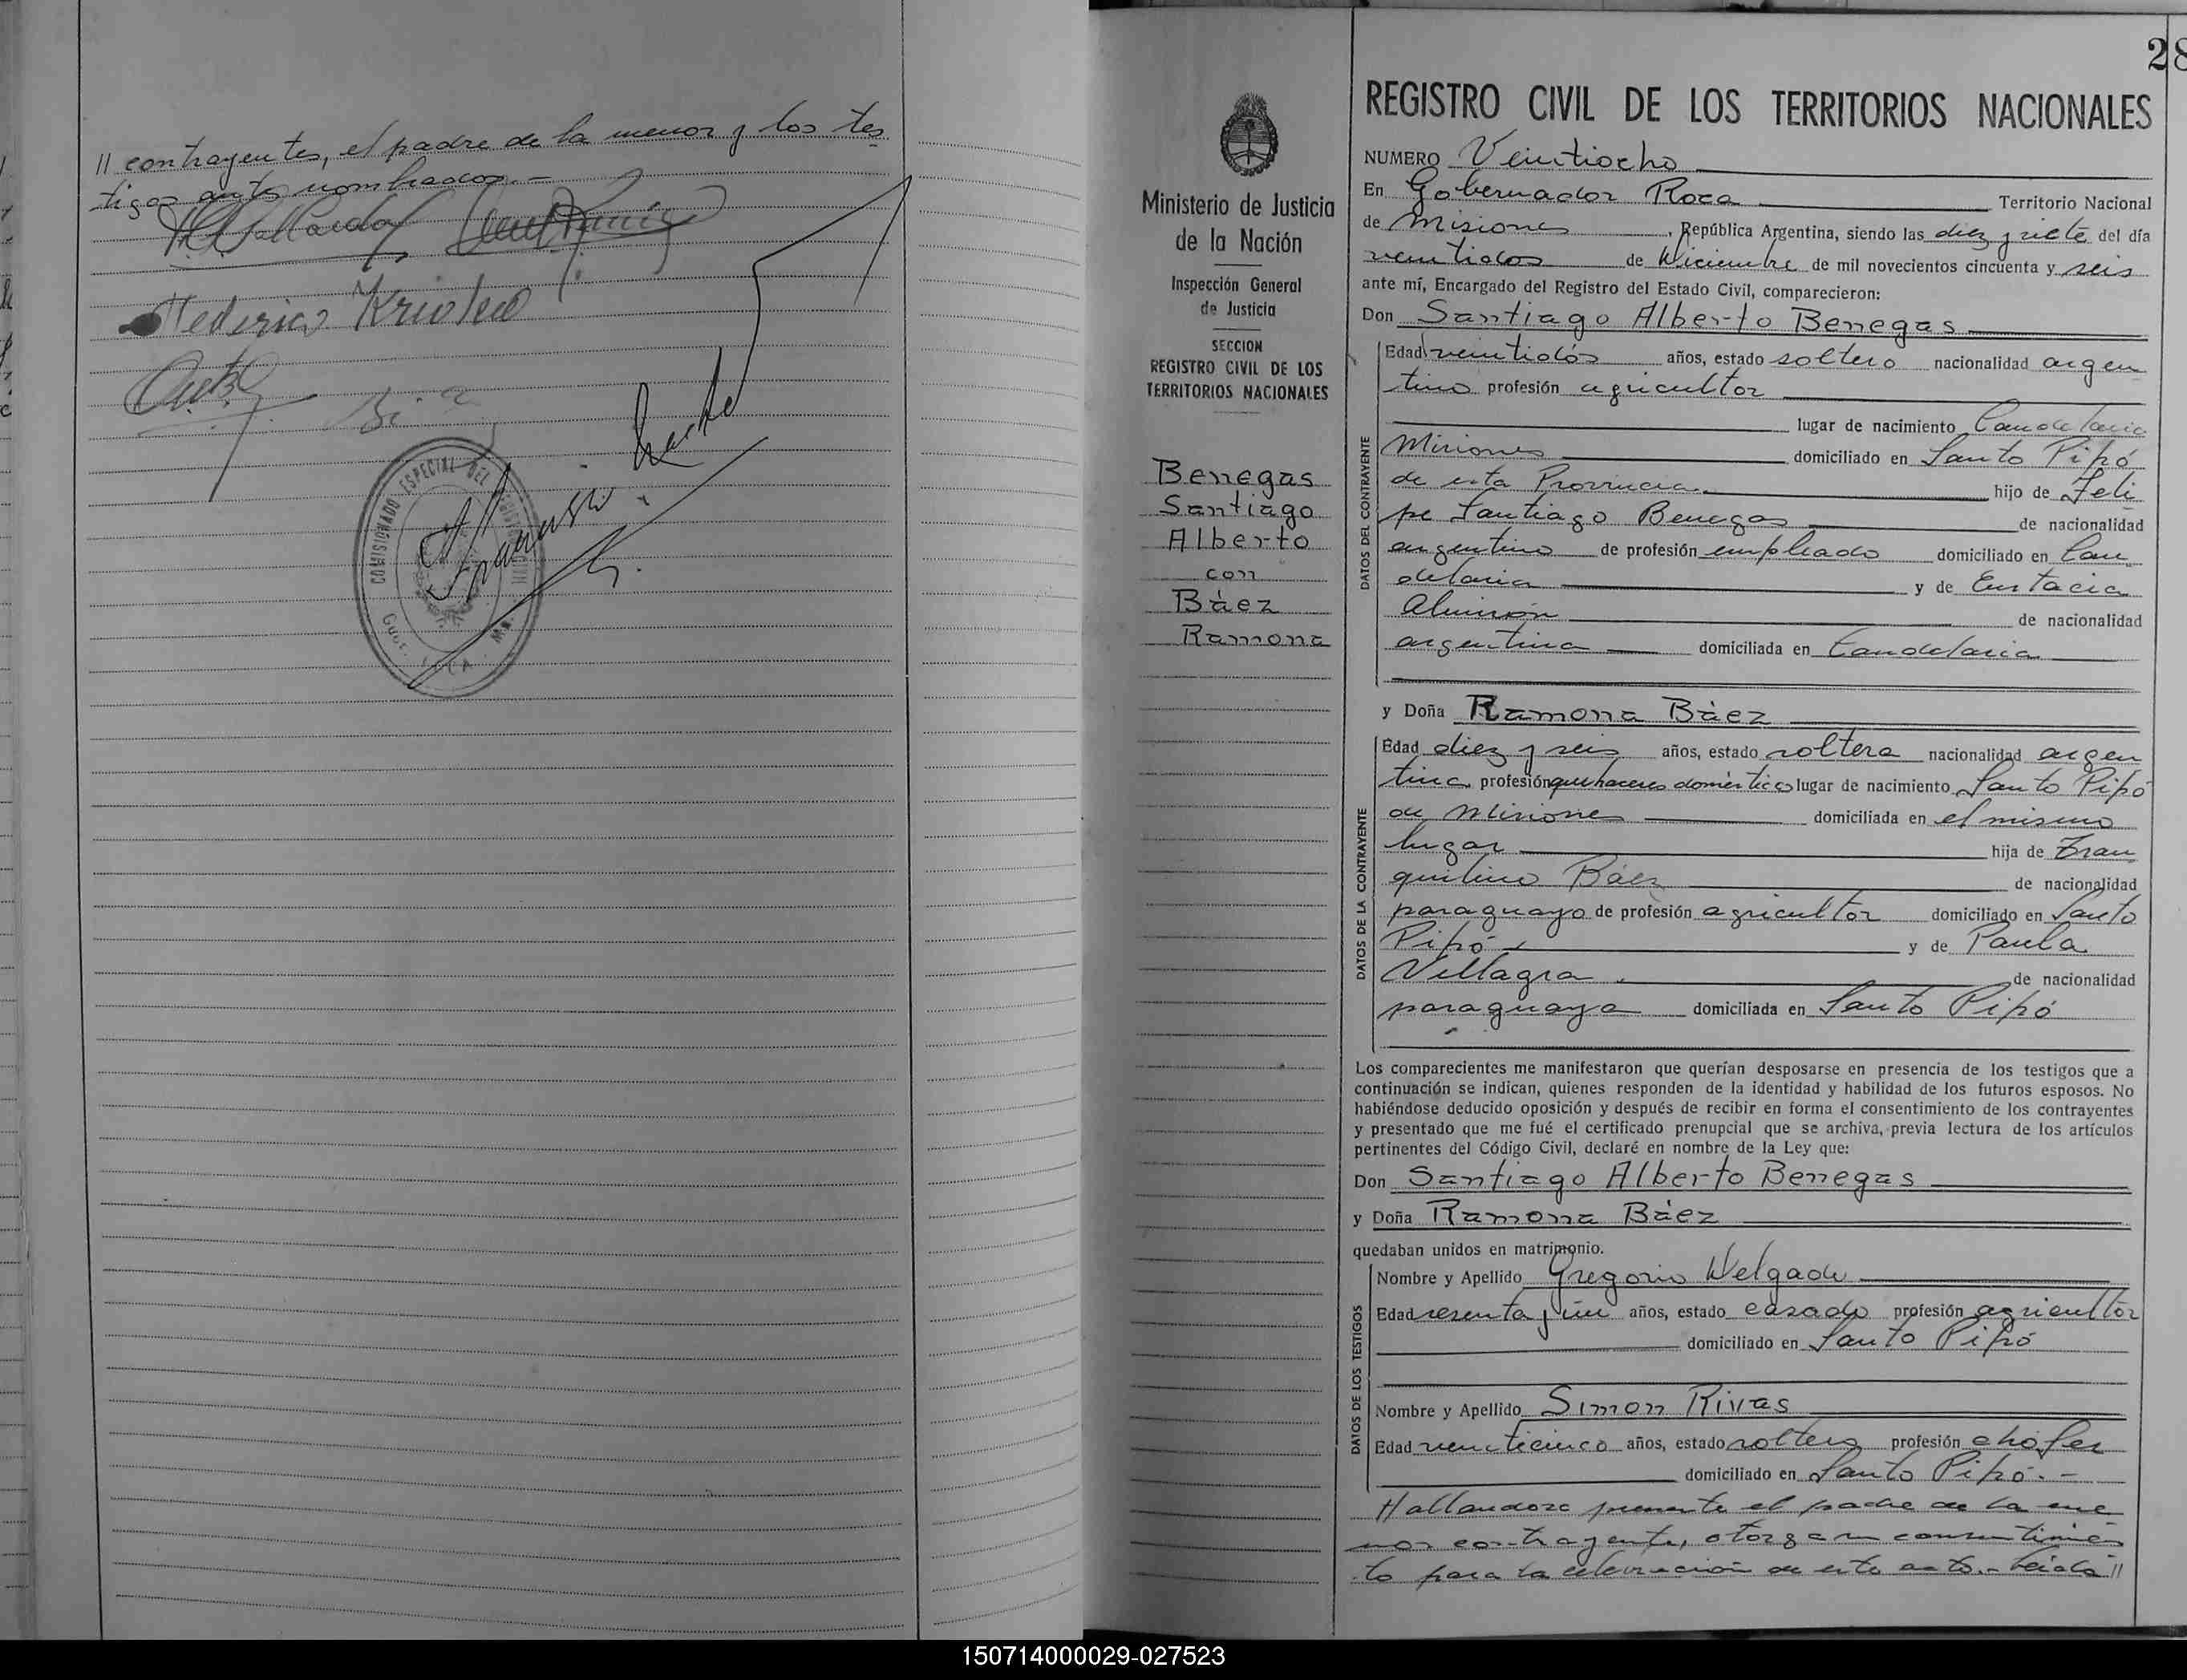 // contrayentes, el padre de la menor y los tes
tigos antes nombrados.-
Federico
COMISIONADO ESPECIAL DEL
28
REGISTRO CIVIL DE LOS TERRITORIOS NACIONALES
Ministerio de Justicia
de la Nación
Inspección General
de Justicia
SECCION
REGISTRO CIVIL DE LOS
TERRITORIOS NACIONALES
Benegas
Santiago
Alberto
con
Báez
Ramona
NUMERO Veintiocho
En Gobernador Roca Territorio Nacional
de Misiones, República Argentina, siendo las diez y siete del día
veintidos de Diciembre de mil novecientos cincuenta y seis
ante mí, Encargado del Registro del Estado Civil, comparecieron:
Don Santiago Alberto Benegas
DATOS DEL CONTRAYENTE
Edad veintidós años, estado soltero nacionalidad argen
tino profesión agricultor
lugar de nacimiento Candelaria
Misiones domiciliado en Santo Pipó
de esta Provincia hijo de Feli
pe Santiago Benegas de nacionalidad
argentino de profesión empleado domiciliado en Can
delaria y de Eustacia
de nacionalidad
argentina domiciliada en Candelaria
y Doña Ramona Báez
DATOS DE LA CONTRAYENTE
Edad diez y seis años, estado soltera nacionalidad argen
tina profesión quehaceres domésticos lugar de nacimiento Santo Pipó
de Misiones domiciliada en el mismo
lugar hija de Tran
quilino Báez de nacionalidad
paraguayo de profesión agricultor domiciliado en Santo
Pipó y de Paula
Villagra de nacionalidad
paraguaya domiciliada en Santo Pipó
Los comparecientes me manifestaron que querían desposarse en presencia de los testigos que a
continuación se indican, quienes responden de la identidad y habilidad de los futuros esposos. No
habiéndose deducido oposición y después de recibir en forma el consentimiento de los contrayentes
y presentado que me fué el certificado prenupcial que se archiva, previa lectura de los artículos
pertinentes del Código Civil, declaré en nombre de la Ley que:
Don Santiago Alberto Benegas
y Doña Ramona Báez
quedaban unidos en matrimonio.
DATOS DE LOS TESTIGOS
Nombre y Apellido Gregorio Delgado
Edad sesenta y un años, estado casado profesión agricultor
domiciliado en Santo Pipó
Nombre y Apellido Simon Rivas
Edad veinticinco años, estado soltero profesión chófer
domiciliado en Santo Pipó.-
Hallandose presente el padre de la me
nor contrayente, otorga su consentimien
to para la celebración de este acto.- Leída //
150714000029-027523